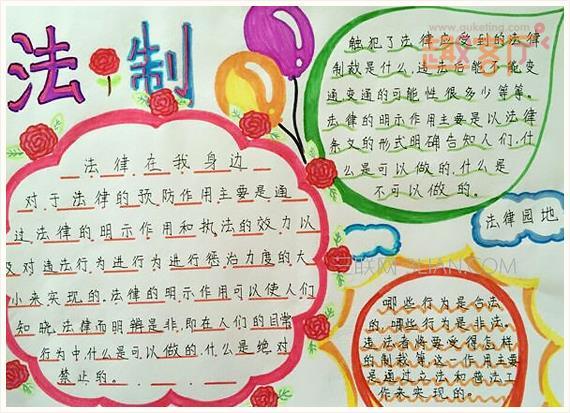 法制
法律在我身边
对于法律的预防作用主要是通
过法律的明示作用和执法的效力以
及对违法行为进行为进行惩治力度的大
小来实现的.法律的明示作用可以使人们
知晓.法律而明辨是非.即在人们的日常
行为中.什么是可以做的.什么是绝对
禁止的。
www.guketing.com
触犯了法律应受到的法律
制裁是什么.违法后能不能变
通.变通的可能性很多少等等。
法律的明示作用主要是以法律
条文的形式明确告知人们.什
么是可以做的.什么是
不可以做的。
法律园地
哪些行为是合法
的.哪些行为是非法.
违法者将要受得怎样
的制裁等这一作用主要
是通过立法和普法工
作来实现的。